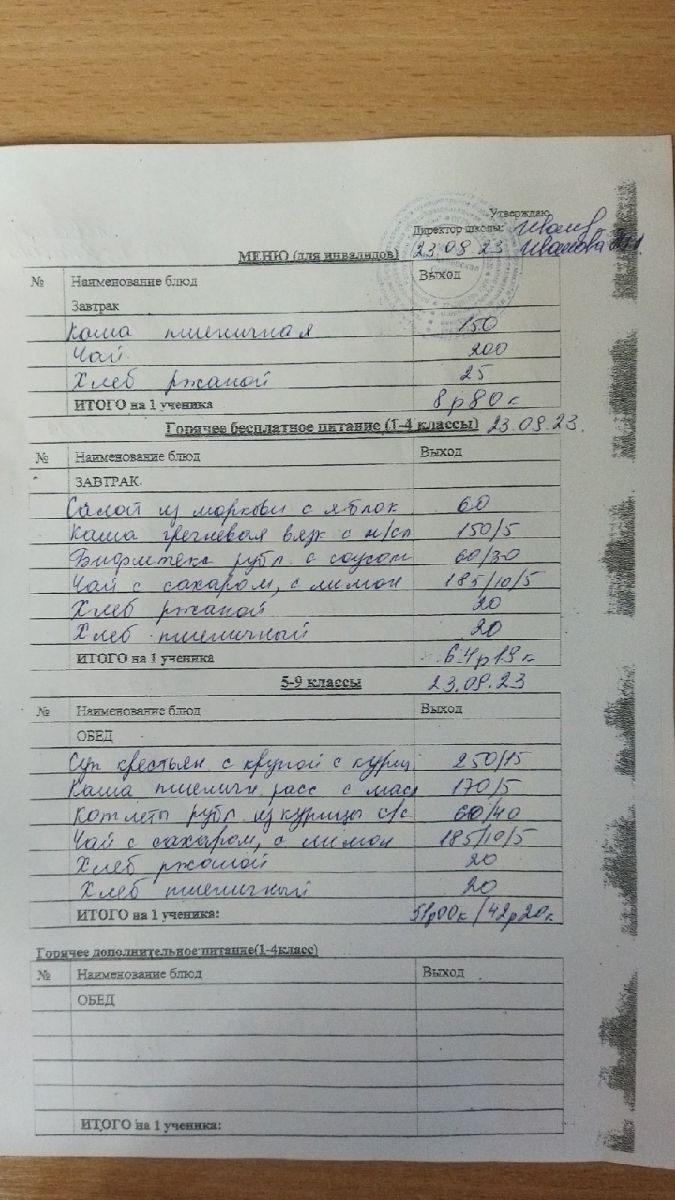 Утверждаю
Директор школы:
23.09.23 Иванова
МЕНЮ (для инвалидов)
№ Наименование блюд Выход
Завтрак
Каша пшеничная 150
Чай 200
Хлеб ржаной 25
ИТОГО на 1 ученика 8р80к
Горячее бесплатное питание (1-4 классы) 23.09.23.
№ Наименование блюд Выход
ЗАВТРАК
Салат из моркови с яблок 60
Каша гречневая вязк с м/сл 150/5
Бифштекс рубл. с соусом 60/30
Чай с сахаром, с лимон 185/10/5
Хлеб ржаной 20
Хлеб пшеничный 20
ИТОГО на 1 ученика 64р19к
5-9 классы 23.09.23
№ Наименование блюд Выход
ОБЕД
Суп крестьян с крупой с куриц 250/15
Каша пшеничн. расс с масл 170/5
Котлеты рубл из курицы с/с 60/40
Чай с сахаром, с лимон 185/10/5
Хлеб ржаной 20
Хлеб пшеничный 20
ИТОГО на 1 ученика: 51р00к/42р20к
Горячее дополнительное питание(1-4класс)
№ Наименование блюд Выход
ОБЕД
ИТОГО на 1 ученика: